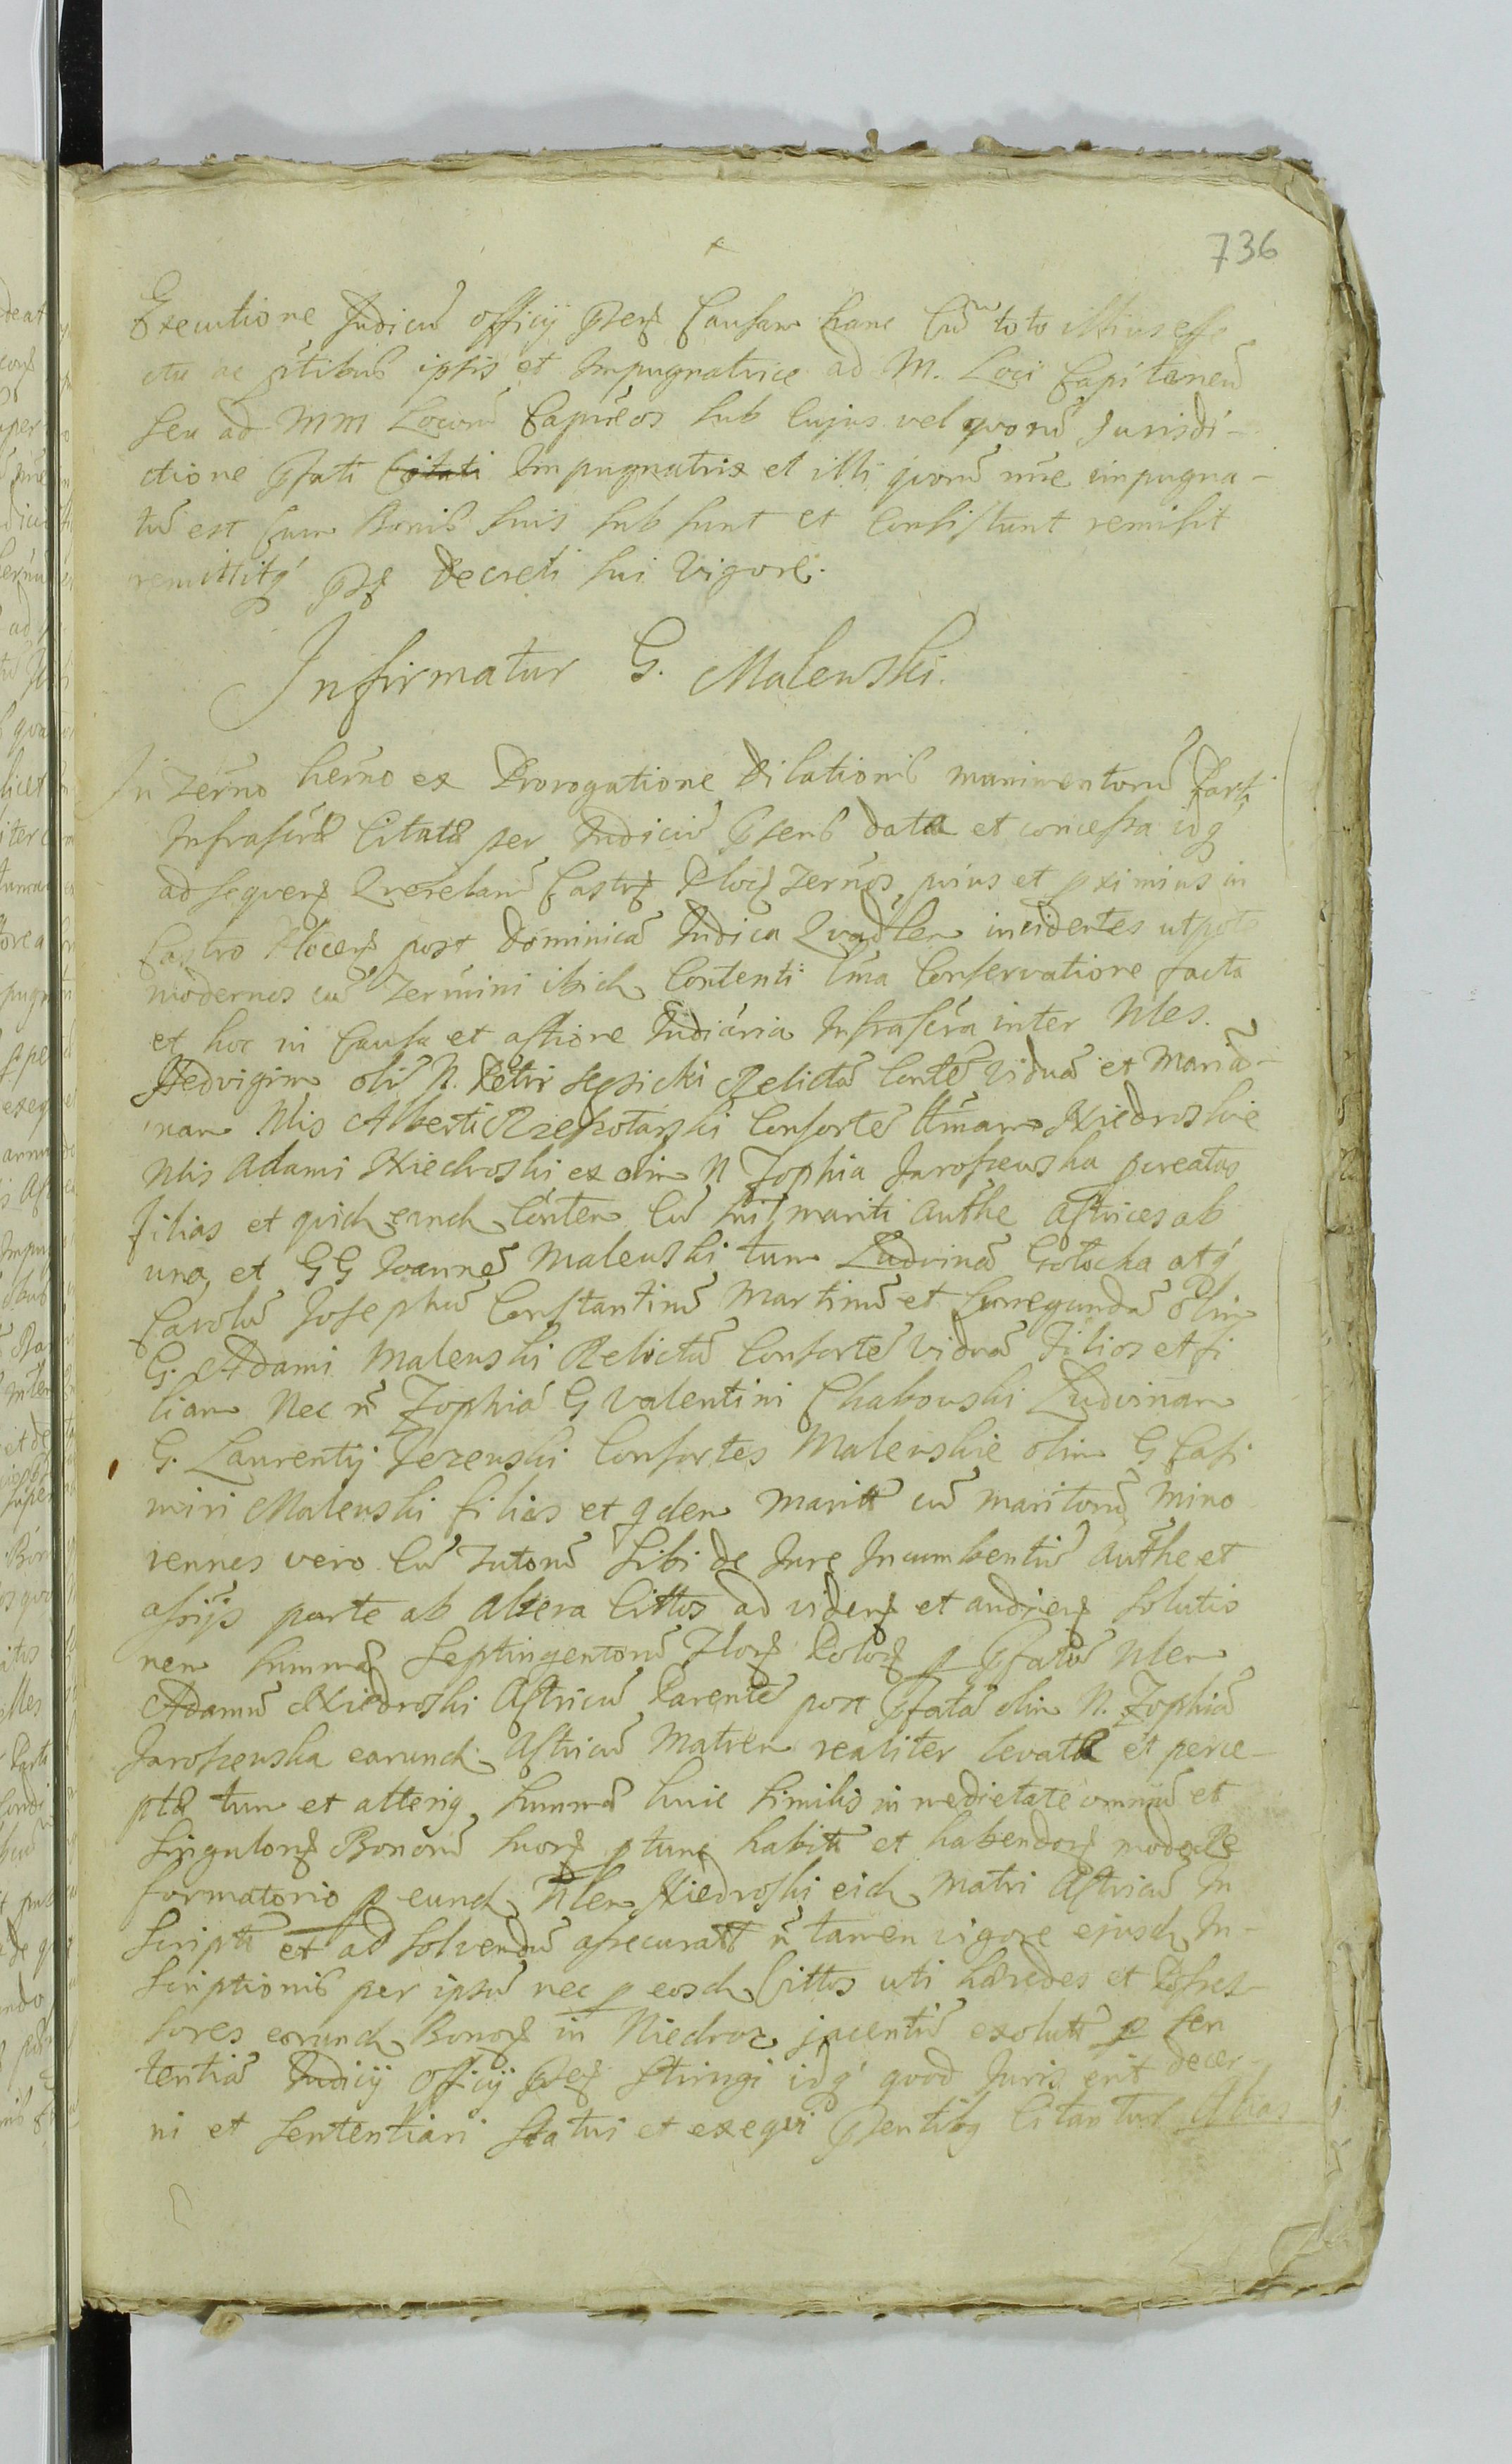 736
Executione Judiciu officij pser Causam hanc Cum toto illius effe
ctu ac ptibus ipsis et Impugnatrice ad M. Loci Capitaneu
seu ad MM Locoru Capneos sub Cujus vel quoru Jurisdi-
ctione pfati Citati Impugnatrix et illi quoru nne impugna-
tu est Cum Bonis suis sub sunt et Consistunt remisit
remittitq Decreti sui Vigore.
Infirmatur G. Malewski.
In Termo herno ex Prorogatione Dilationis munimentoru Parti
Infrascra Citata per Judiciu psens data et concessa idq
ad sequens Querelaru Castr Ploc Termos prius et pximius in
Castro Plocen post Dominica Judica Quadlem incidentes utpote
modernos cu Termini ibid Contenti Conservatione facta
et hoc in Causa et actione Judiciaria Infrascra inter Nles.
Hedvigim oli N. Petri Relicta Conte Vidua et Maria-
nam Nlis Alberti Rzeszotarski Consorte Niedroskie
Nlis Adami Niedroski ex olim N Zophia Jaroszewska pcreatas
filias et quid eand Conten Cu sui mariti authe Actrices ab
una, et GG Joanne Malewski tum Ludvina Golocka atq
Carolu Josephu Constantinu Martinu et Cunegunda olim
G. Adami Malewski Relicta Consorte Vidua Filios et fi
liam Nec n Zophia G Valentini Chabowski Ludvinam
G. Laurentij Jezewski Consortes Malewskie olim G Casi
miri Malewski filias et qdem Maritt cu maritoru Mino
rennes vero Cu Tutoru Sibi de Jure Incumbentiu Authe et
assijs parte ab Altera Cittos ad viden et audien solutio
nem summa Septingentoru Flor Polo p pfatu Nlem
Adamu Niedroski Actricu Parente post pfata olim N. Zophia
Jaroszewska earund Actricu Matrem realiter levata et perce-
pta tum et alteriq summa huic similis in medietate omniu et
Singulor Bonoru suor ptunc habitt et habendor modo Re
formatorio p eund Nlem Niedroski eid Matri Actricu In
scriptt et ad solvendu assecuratt n tamen vigore ejusd In-
scriptionis per ipsu nec p eosd Cittos uti haeredes et Posses-
sores eorund Bonor in Niedroz jacentiu exolutt p sen
tentia Judicij officij pser stringi idq quod Juris erit decer-
ni et sententiari statui et exequi psentibq Citantur Actias